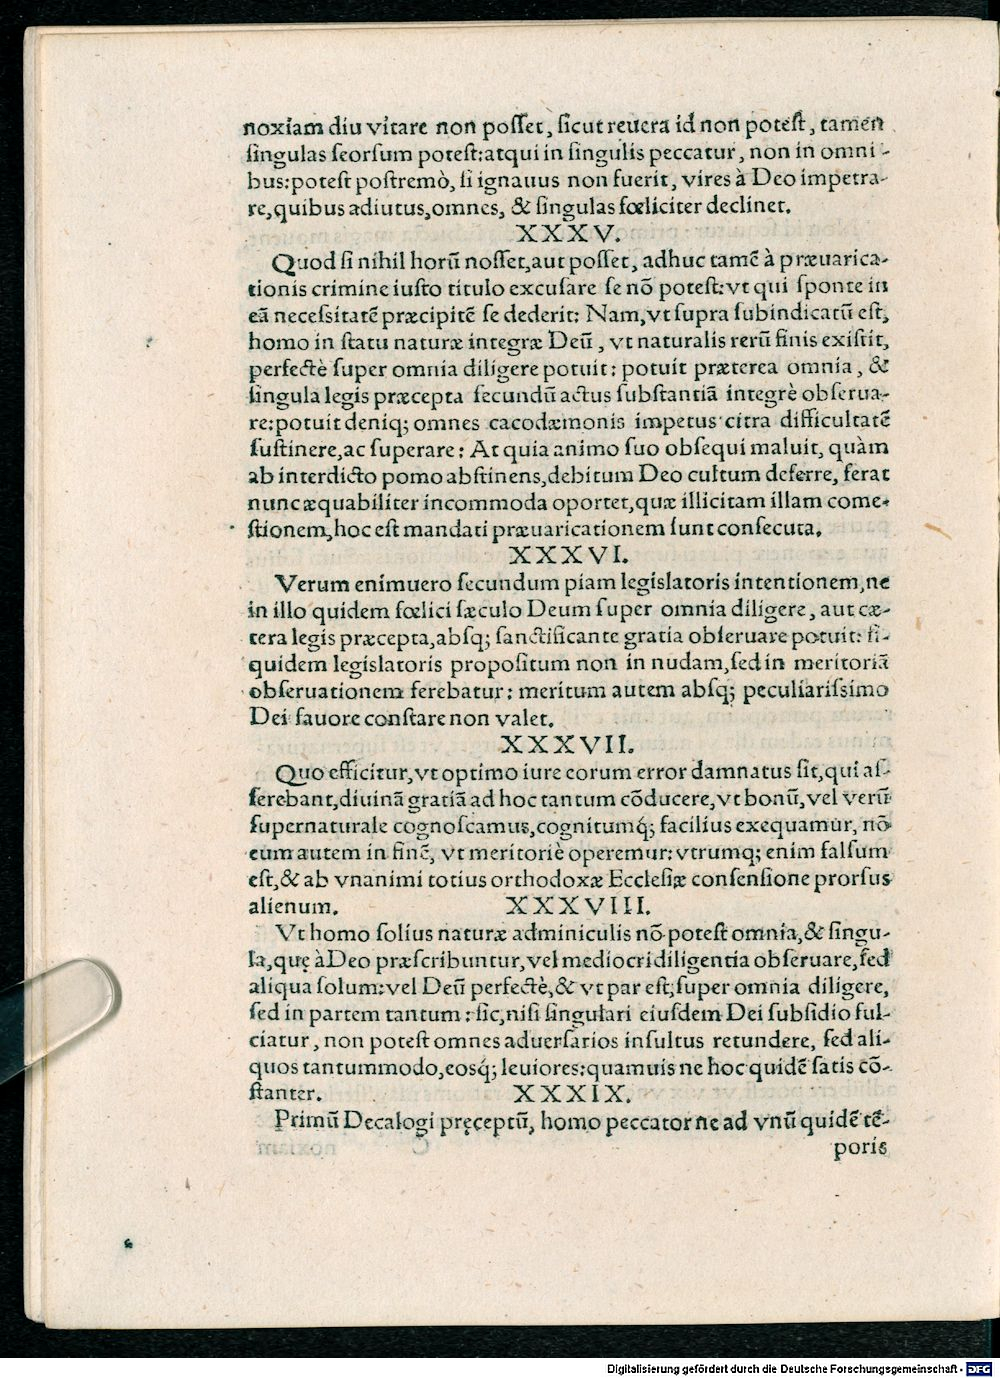 noxiam diu vitare non poſſet, ſicut reuera id non poteſt, tamen
ſingulas ſeorſum poteſt:atqui in ſingulis peccatur, non in omni-
bus:poteſt poſtremò, ſi ignauus non fuerit, vires à Deo impetra-
re,quibus adiutus,omnes, & ſingulas fœliciter declinet.
XXXV.
Quod ſi nihil horū noſſet,aut poſſet, adhuc tamē à præuarica-
tionis crimine iuſto titulo excuſare ſe nō poteſt:vt qui ſponte in
eā neceſsitatē præcipitē ſe dederit: Nam,vt ſupra ſubindicatū eſt,
homo in ſtatu naturæ integræ Deū, vt naturalis rerū finis exiſtit,
perfectè ſuper omnia diligere potuit: potuit præterea omnia, &
ſingula legis præcepta ſecundū actus ſubſtantiā integrè obſerua-
re:potuit deniq; omnes cacodæmonis impetus citra difficultatē
ſuſtinere,ac ſuperare: At quia animo ſuo obſequi maluit, quàm
ab interdicto pomo abſtinens,debitum Deo cultum deferre, ferat
nunc æquabiliter incommoda oportet,quæ illicitam illam come-
ſtionem,hoc eſt mandati præuaricationem ſunt conſecuta.
XXXVI.
Verum enimuero ſecundum piam legislatoris intentionem,ne
in illo quidem fœlici ſæculo Deum ſuper omnia diligere, aut cæ-
tera legis præcepta,abſq; ſanctificante gratia obſeruare potuit: ſi-
quidem legislatoris propoſitum non in nudam,ſed in meritoriā
obſeruationem ferebatur: meritum autem abſq; peculiariſsimo
Dei fauore conſtare non valet.
XXXVII.
Quo efficitur,vt optimo iure eorum error damnatus ſit,qui aſ-
ſerebant,diuinā gratiā ad hoc tantum cōducere,vt bonū,vel verū
ſupernaturale cognoſcamus,cognitumq́; facilius exequamur, nō
eum autem in finē, vt meritoriè operemur: vtrumq; enim falſum
eſt,& ab vnanimi totius orthodoxæ Eccleſiæ conſenſione prorſus
alienum. XXXVIII.
Vt homo ſolius naturæ adminiculis nō poteſt omnia,& ſingu-
la,quę à Deo præſcribuntur,vel mediocri diligentia obſeruare,ſed
aliqua ſolum:vel Deū perfectè,& vt par eſt,ſuper omnia diligere,
ſed in partem tantum: ſic,niſi ſingulari eiuſdem Dei ſubſidio ful-
ciatur, non poteſt omnes aduerſarios inſultus retundere, ſed ali-
quos tantummodo,eosq́; leuiores:quamuis ne hoc quidē ſatis cō-
ſtanter. XXXIX.
Primū Decalogi pręceptū, homo peccator ne ad vnū quidē tē-
poris
Digitalisierung gefördert durch die Deutsche Forschungsgemeinschaft - DFG